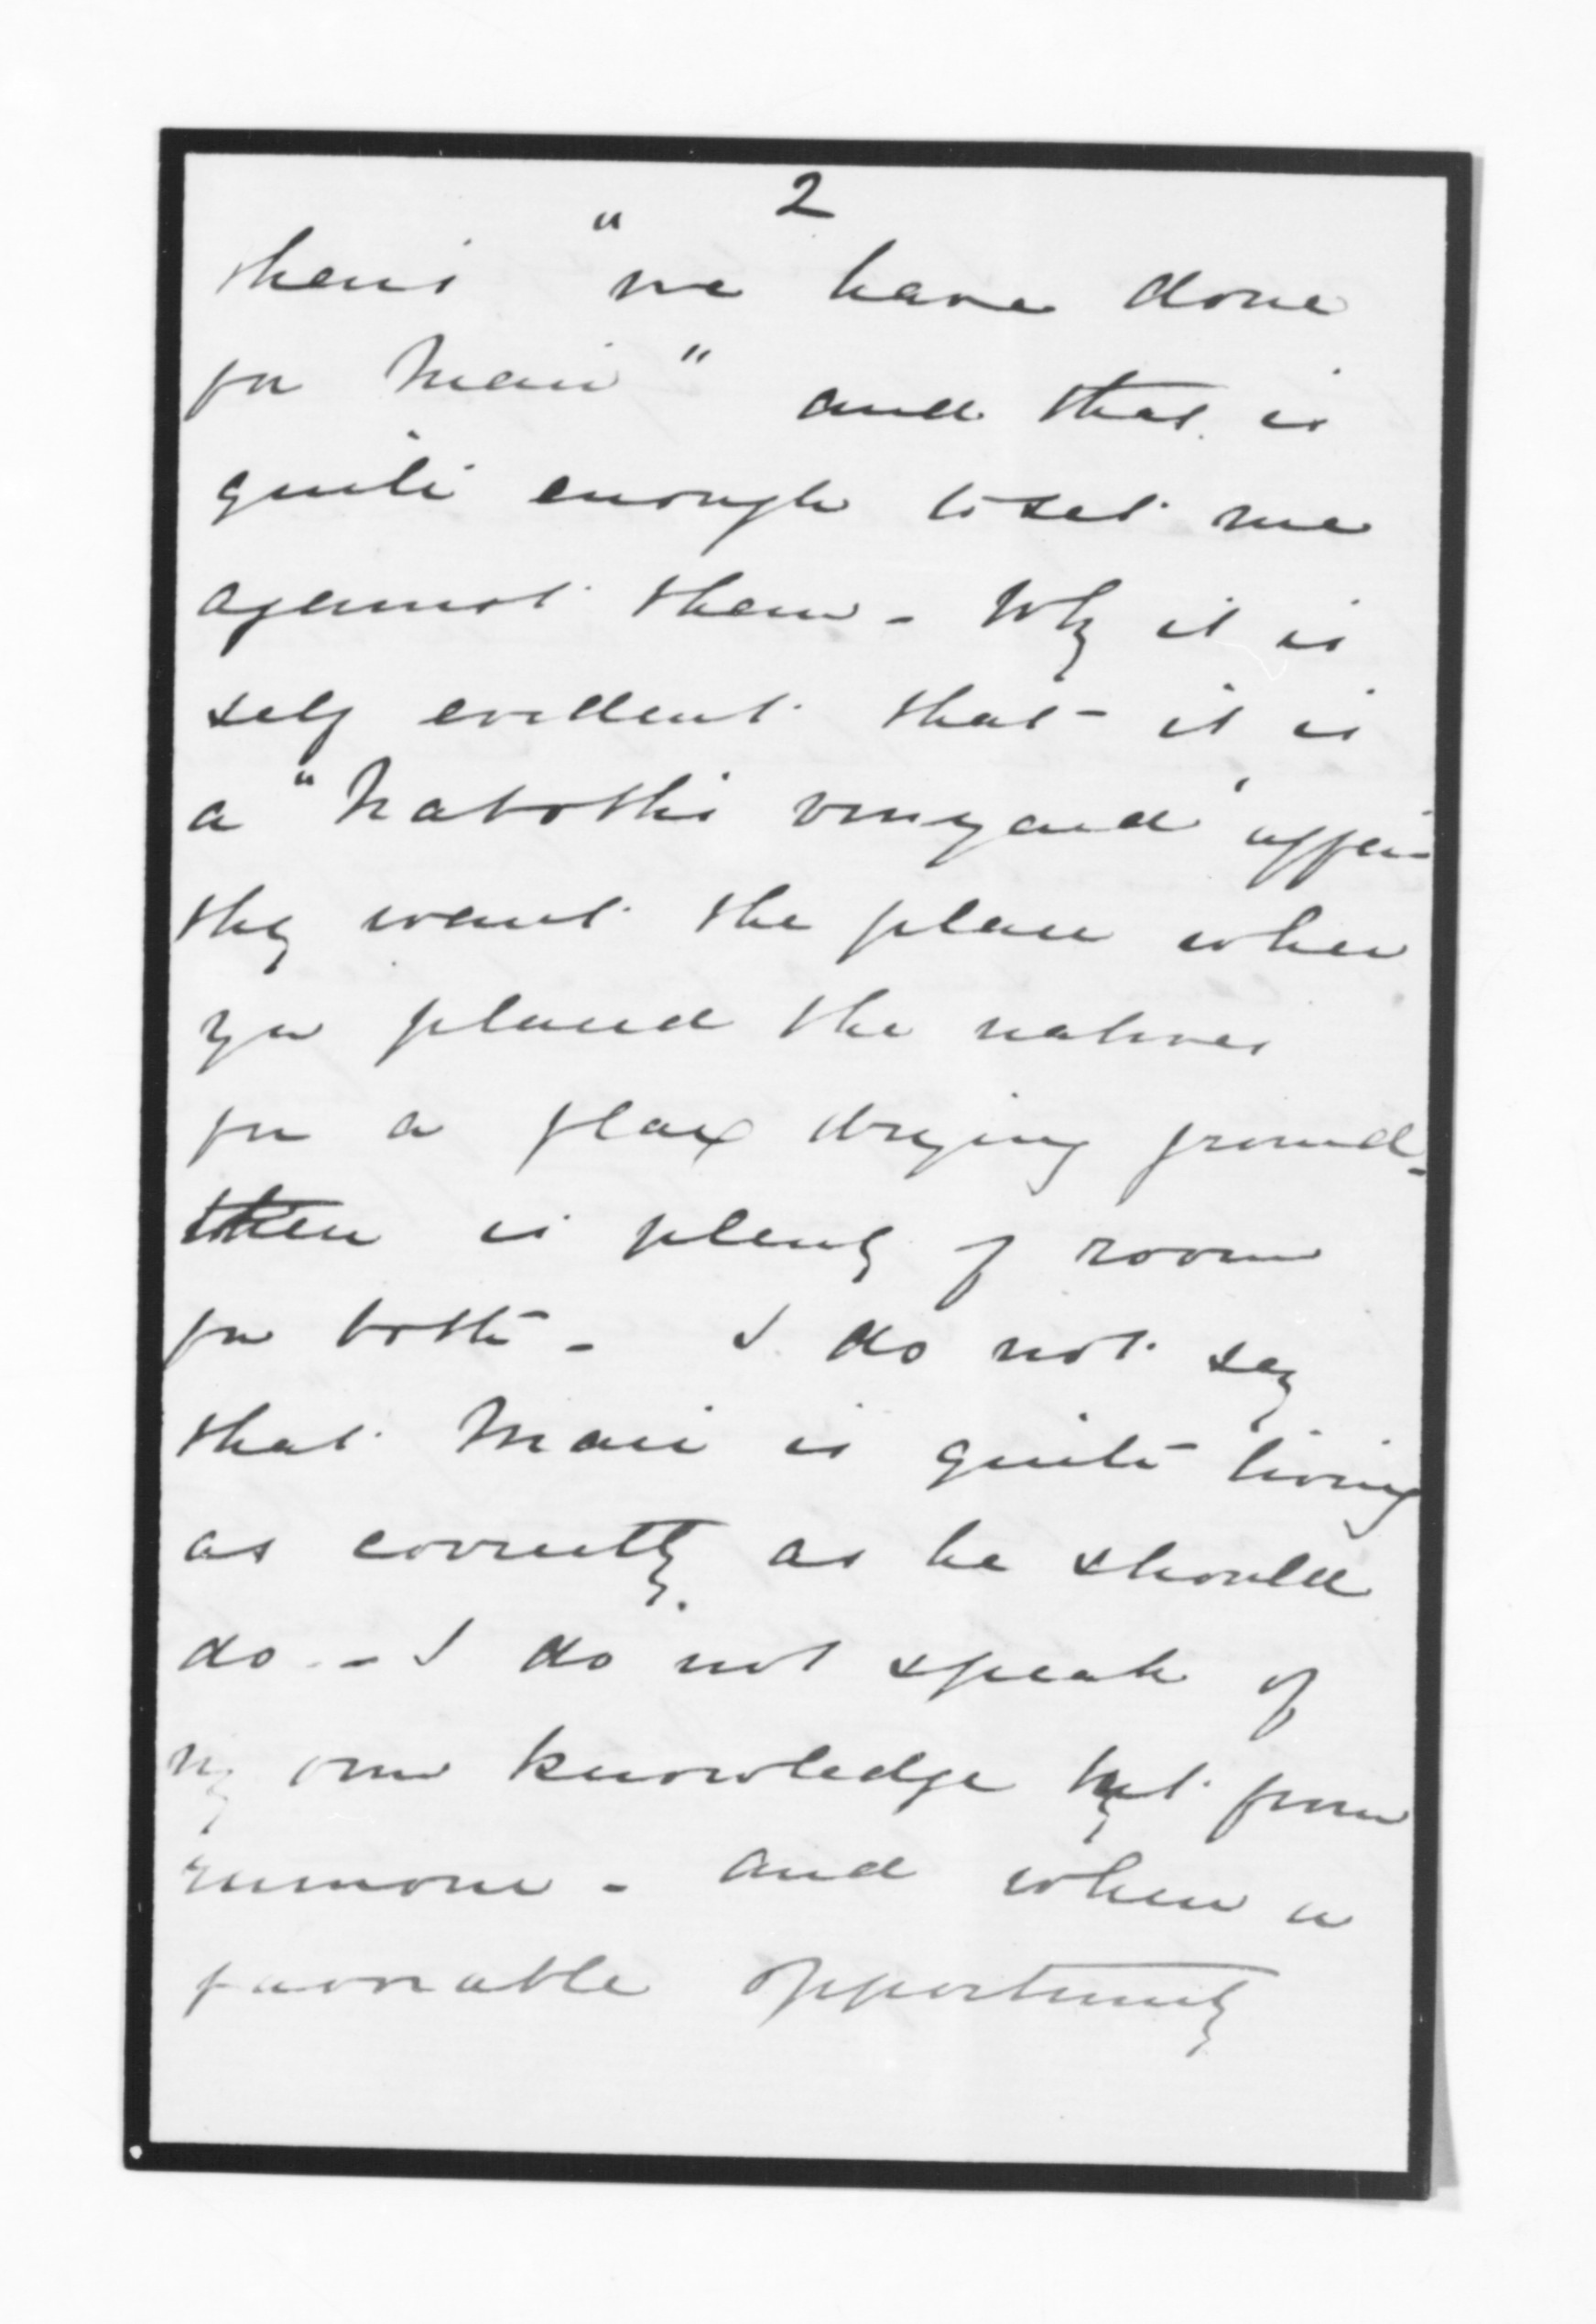 2
theirs "we have done
for Mair" and that is
quite enough to set me
against them - Why it is
self evident that - it is
a "Naboths vineyard" affair
they want the place where
you placed the natives
for a flax drying ground -
there is plenty of room
for both - I do not say
that Mair is quite living
as correctly as he should
do - I do not speak of
my own knowledge but from
rumour - and when a
favorable opportunity